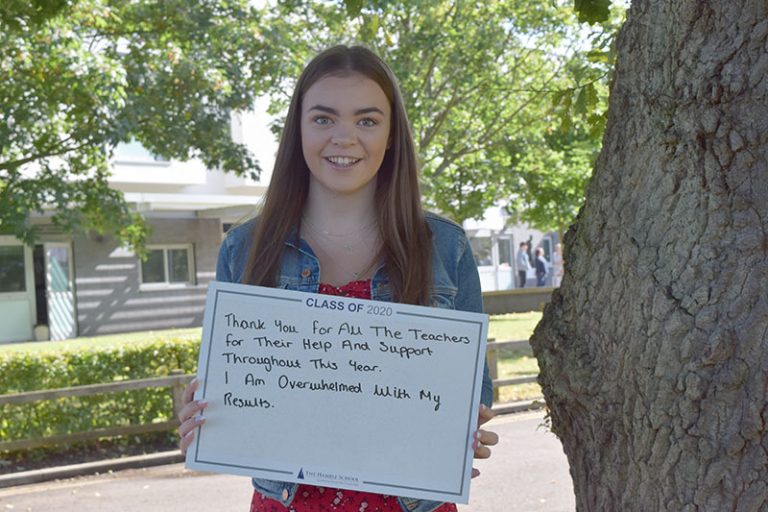 CLASS OF 2020
Thank You for All The Teachers
for Their Help And Support
Throughout This Year.
I Am Overwhelmed With My
Results.
THE HAMBLE SCHOOL